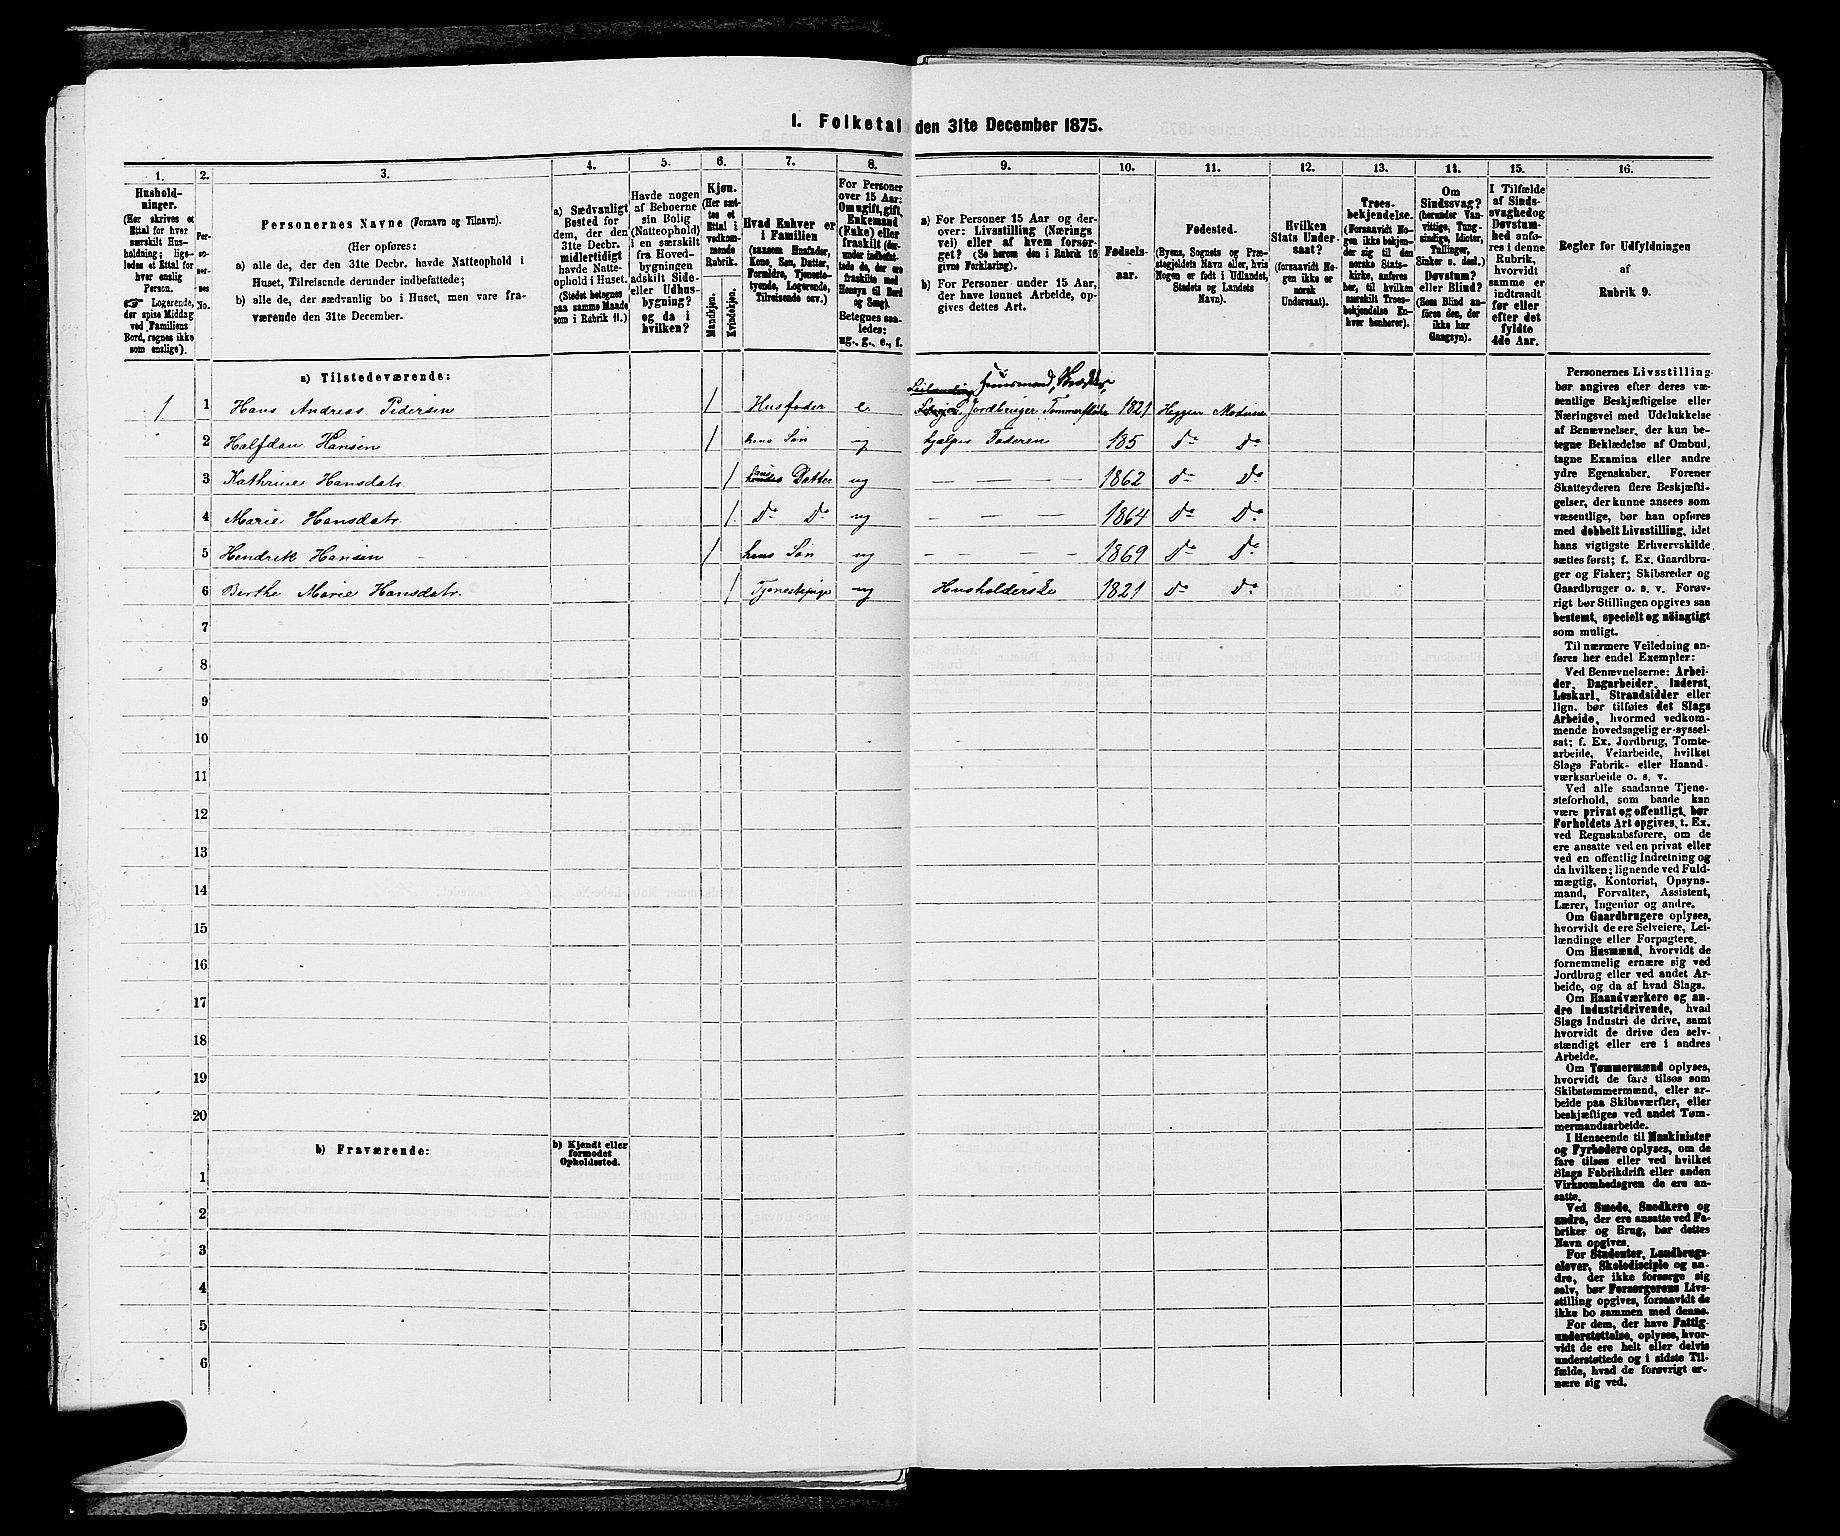 I. Folketal den 31te December 1875.
1.
2.
3.
4.
5.
6.
7.
8.
9.
10.
11.
12.
13.
14.
15.
16.
Hushold-
ninger.
(Her skrives et
Ettal for hver
særskilt Hus-
holdning; lige-
ledes et Ettal for
hver enslig
Person.
☞ Logerende,
der spise Middag
ved Familiens
Bord, regnes ikke
som enslige).
Per-
so-
ner-
nes
No.
Personernes Navne (Fornavn og Tilnavn).
(Her opføres:
a) alle de, der den 31te Decbr. havde Natteophold i
Huset, Tilreisende derunder indbefattede;
b) alle de, der sædvanlig bo i Huset, men vare fra-
værende den 31te December.
a) Sædvanligt
Bosted for
dem, der den
31te Decbr.
midlertidigt
havde Natte-
ophold i Huset.
(Stedet betegnes
paa samme Maade
som i Rubrik 11.)
Havde nogen
af Beboerne
sin Bolig
(Natteophold)
i en særskilt
fra Hoved-
bygningen
adskilt Side-
eller Udhus-
bygning?
og da i
hvilken?
Kjøn.
(Her sæt-
tes et
Ettal i
vedkom-
mende
Rubrik.
Mandkjøn.
Kvindekjøn.
Hvad Enhver er
i Familien
(saasom Husfader,
Kone, Søn, Datter,
Forældre, Tjeneste-
tyende, Logerende,
Tilreisende osv.)
For Personer
over 15 Aar:
Om ugift, gift,
Enkemand
(Enke) eller
fraskilt (der-
under indbefat-
tede de, der ere
fraskilte med
Hensyn til Bord
og Seng).
Betegnes saa-
ledes:
ug., g., e., f.
a) For Personer 15 Aar og der-
over: Livsstilling (Nærings
vei) eller af hvem forsør-
get? (Se herom den i Rubrik 16
givne Forklaring).
b) For Personer under 15 Aar,
der have lønnet Arbeide, op-
gives dettes Art.
Fødsels-
aar.
Fødested.
(Byens, Sognets og Præ-
stegjeldets Navn eller, hvis
Nogen er født i Udlandet,
Stedets og Landets
Navn).
Hvilken
Stats Under-
saat?
(forsaavidt No-
gen ikke er
norsk
Undersaat).
Troes-
bekjendelse.
(Forsaavidt No-
gen ikke bekjen-
der sig til den
norske Stats-
kirke, anføres
her, til hvilken
særskilt Troes-
bekjendelse En-
hver henhører).
Om
Sindssvag?
(herunder Van-
vittige, Tung-
sindige, Idioter,
Tullinger,
Sinker o. desl.)
Døvstum?
eller Blind?
(Som Blind an-
føres den, der
ikke har
Gangsyn).
I Tilfælde
af Sinds-
svaghed og
Døvstum-
hed anfø-
res i denne
Rubrik,
hvorvidt
samme er
indtraadt
før eller
efter det
fyldte
4de Aar.
Regler for Udfyldningen
af
Rubrik 9.
a) Tilstedeværende:
1 1 Hans Andreas Pedersen 1 Husfader e. Jordbruger 1821 Heggen Modum
2 Halfdan Hansen 1 hans Søn ug hjælper Faderen 185 do do
3 Kathrine Hansdatr 1 hans Datter ug — — — — 1862 do do
4 Marie Hansdatr. 1 do do ug — — — 1864 do do
5 Hendrik Hansen 1 hans Søn ug — — — 1869 do do
6 Berthe Marie Hansdatr. 1 Tjenestepige ug Husholderske 1821 do do
7
8
9
10
11
12
13
14
15
16
17
18
19
20
b) Fraværende:
b) Kjendt eller
formodet
Opholdssted.
1
2
3
4
5
6
Personernes Livsstilling
bør angives efter deres væ-
sentlige Beskjæftigelse eller
Næringsvei med Udelukkelse
af Benævnelser, der kun be-
tegne Beklædelse af Ombud,
tagne Examina eller andre
ydre Egenskaber. Forener
Skatteyderen flere Beskjæfti-
gelser, der kunne ansees som
væsentlige, bør han opføres
med dobbelt Livsstilling, idet
hans vigtigste Erhvervskilde
sættes først; f. Ex. Gaardbru-
ger og Fisker; Skibsreder og
Gaardbruger o. s. v. Forøv-
rigt bør Stillingen opgives saa
bestemt, specielt og nöiagtigt
som muligt.
Til nærmere Veiledning an-
føres her endel Exempler:
Ved Benævnelserne: Arbei-
der, Dagarbeider, Inderst,
Løskarl, Strandsidder eller
lign. bør tilføies det Slags
Arbeide, hvormed vedkom-
mende hovedsagelig er syssel-
sat; f. Ex. Jordbrug, Tomte-
arbeide, Veiarbeide, hvilket
Slags Fabrik- eller Haand-
værksarbeide o. s. v.
Ved alle saadanne Tjene-
steforhold, som baade kan
være privat og offentligt, bør
Forholdets Art opgives, t. Ex.
ved Regnskabsførere, om de
ere ansatte ved en privat eller
ved en offentlig Indretning og
da hvilken; lignende ved Fuld-
mægtig, Kontorist, Opsyns-
mand, Forvalter, Assistent,
Lærer, Ingeniør og andre.
Om Gaardbrugere oplyses,
hvorvidt de ere Selveiere, Lei-
lændinge eller Forpagtere.
Om Husmænd, hvorvidt de
fornemmelig ernære sig ved
Jordbrug eller ved andet Ar-
beide, og da af hvad Slags.
Om Haandværkere og an-
dre Industridrivende, hvad
Slags Industri de drive, samt
hvorvidt de drive den selv-
stændigt eller ere i andres
Arbeide.
Om Tømmermænd oplyses,
hvorvidt de fare tilsøs som
Skibstømmermænd, eller ar-
beide paa Skibsværfter, eller
beskjæftiges ved andet Tøm-
mermandsarbeide.
I Henseende til Maskinister
og Fyrbødere oplyses, om de
fare tilsøs eller ved hvilket
Slags Fabrikdrift eller anden
Virksomhedsgren de ere an-
satte.
Ved Smede, Snedkere og
andre, der ere ansatte ved Fa-
briker og Brug, bør dettes
Navn opgives.
For Studenter, Landbrugs-
elever, Skoledisciple og an-
dre, der ikke forsørge sig
selv, bør Forsørgerens Livs-
stilling opgives, forsaavidt de
ikke bo sammen med denne.
For dem, der have Fattig-
understøttelse, oplyses, hvor-
vidt de ere helt eller delvis
understøttede og i sidste Til-
fælde, hvad de forøvrigt er-
nære sig ved.